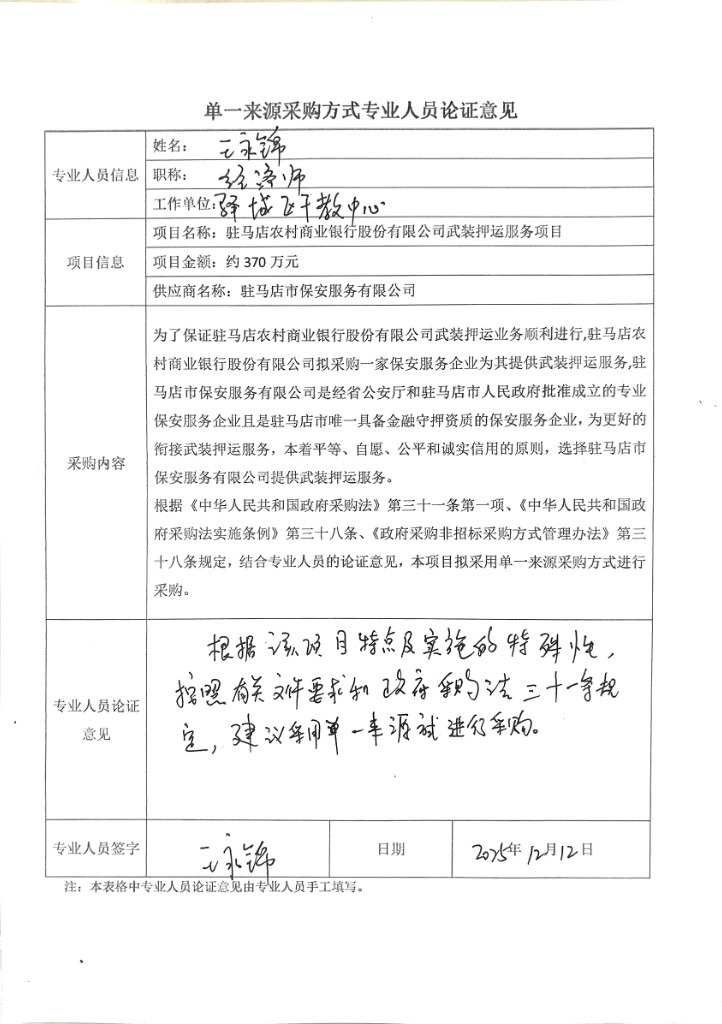 单一来源采购方式专业人员论证意见
专业人员信息
姓名：王永锦
职称：经济师
工作单位:驿城区干教中心
项目信息
项目名称：驻马店农村商业银行股份有限公司武装押运服务项目
项目金额：约370万元
供应商名称：驻马店市保安服务有限公司
采购内容
为了保证驻马店农村商业银行股份有限公司武装押运业务顺利进行,驻马店农
村商业银行股份有限公司拟采购一家保安服务企业为其提供武装押运服务,驻
马店市保安服务有限公司是经省公安厅和驻马店市人民政府批准成立的专业
保安服务企业且是驻马店市唯一具备金融守押资质的保安服务企业，为更好的
衔接武装押运服务，本着平等、自愿、公平和诚实信用的原则，选择驻马店市
保安服务有限公司提供武装押运服务。
根据《中华人民共和国政府采购法》第三十一条第一项、《中华人民共和国政
府采购法实施条例》第三十八条、《政府采购非招标采购方式管理办法》第三
十八条规定，结合专业人员的论证意见，本项目拟采用单一来源采购方式进行
采购。
专业人员论证
意见
根据该项目特点及实施的特殊性，
按照有关文件要求和政府采购法三十一条规
定，建议采用单一来源式进行采购。
专业人员签字
王永锦
日期
2025年12月12日
注：本表格中专业人员论证意见由专业人员手工填写。